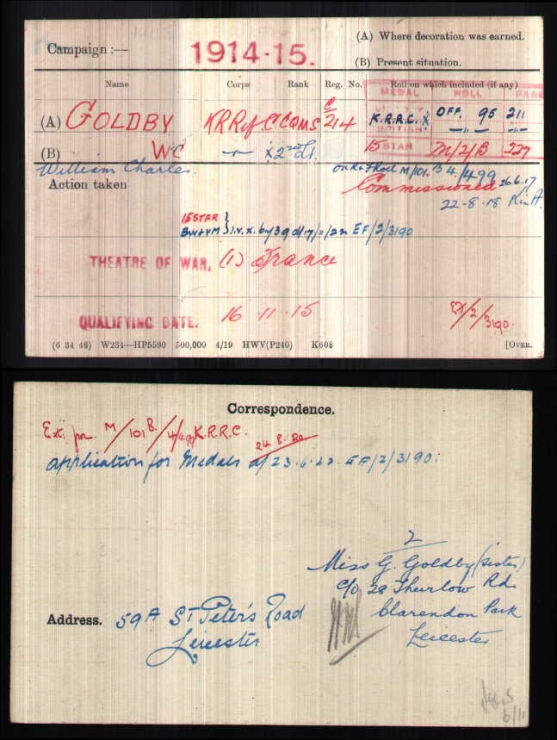 (A) Where decoration was earned.
Campaign :— 1914-15.
(B) Present situation.
Name Corps Rank Reg. No. Roll on which included (if any)
MEDAL ROLL PAGE
(A) GOLDBY K R Rif. C. CQMS C/214 K.R.R.C. X OFF. 95 211
BRITISH —„— „
(B) W C —„— X 2nd Lt. 15 STAR 227
William Charles M/101 B 4/499
Action taken Commissioned 26.6.17
22-8-18 K in A
15 STAR }
B.W & V M } I.V.X. by 39 d/7/11/22 EF/2/3190
THEATRE OF WAR. (1) France
QUALIFYING DATE. 16-11-15 EF/2/3190.
(6 34 46) W234—HP5590 500,000 4/19 HWV(P240) K608 [OVER.
Correspondence.
Ex: fm M/101B/4/499 K.R.R.C. 24.8.20
Application for Medals d/ 23.6.22 EF/2/3190:
2
Miss G. Goldby (sister)
C/o 2a Thurlow Rd.
Clarendon Park
Leicester
Address. 59A St Peter's Road
Leicester